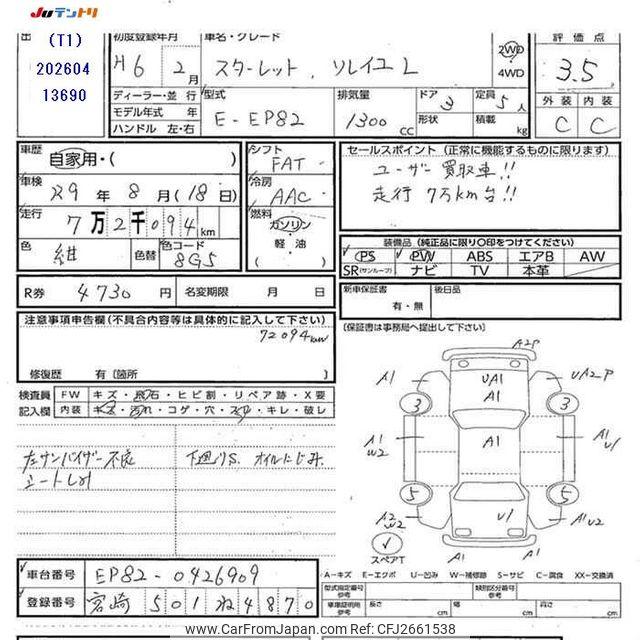 JUテントリ
出
(T1)
202604
13690
初度登録年月 車名・グレード 評価点
H6 2月 スターレット、ソレイユL 2WD 4WD 3.5
ディーラー・並行 型式 排気量 ドア 定員 外装 内装
モデル年式 年 E-EP82 1300cc 3 5人 C C
ハンドル 左・右 形状 積載 kg
車歴 自家用・( ) シフト FAT
車検 R9年8月(18日) 冷房 AAC
走行 7万2千094km 燃料 ガソリン 軽油 ( )
色 紺 色替 色コード 8G5
セールスポイント(正常に機能するものに限ります)
ユーザー買取車!!
走行7万km台!!
装備品(純正品に限り〇印をつけてください)
PS PW ABS エアB AW
SR(サンルーフ) ナビ TV 本革
R券 4730円 名変期限 月 日
新車保証書 有・無 後日品
(保証書は事務局へ提出して下さい)
注意事項申告欄(不具合内容等は具体的に記入して下さい)
72094km
修復歴 有〔箇所 〕
検査員記入欄
FW キズ・飛石・ヒビ割・リペア跡・X要
内装 キズ・汚れ・コゲ・穴・スレ・キレ・破レ
左サンバイザー不良 下廻りS、オイルにじみ
シートしみ
A2P
A1 UA1 UA2-P
A1
3 3
A1 W2 A1 A1 U1
5 5
A2 W2 U1 A1U2
スペアT A1 A1
A-キズ E-エクボ U-凹み W-補修跡 S-サビ C-腐食 XX-交換済
車台番号 EP82-0426909
登録番号 宮崎501ね4870
型式指定番号 参考 類別区分番号 参考
車庫証明用 参考 長さ cm 幅 cm 高さ cm
www.CarFromJapan.com | CFJ2661538